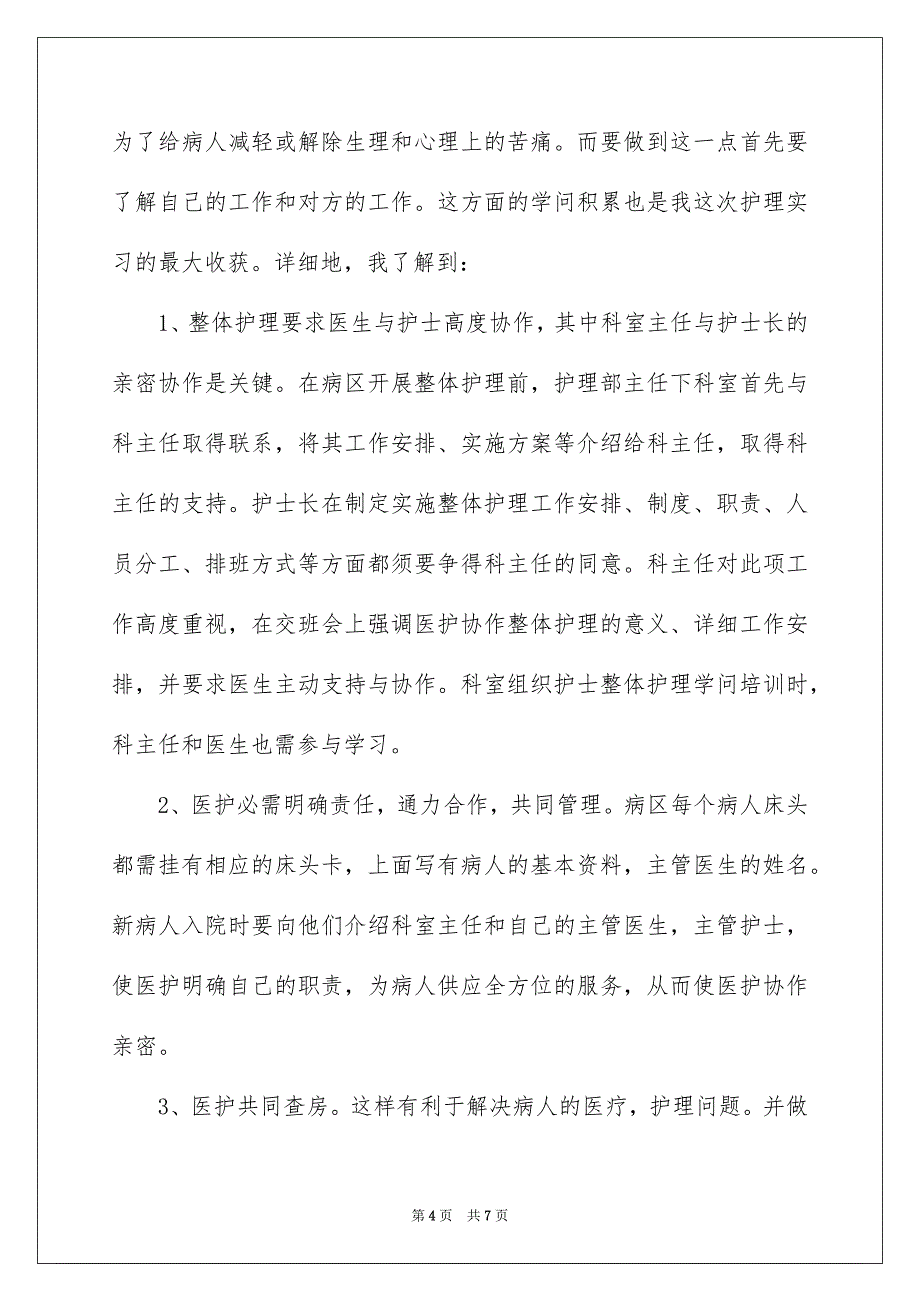 为了给病人减轻或解除生理和心理上的苦痛。而要做到这一点首先要
了解自己的工作和对方的工作。这方面的学问积累也是我这次护理实
习的最大收获。详细地，我了解到：
1、整体护理要求医生与护士高度协作，其中科室主任与护士长的
亲密协作是关键。在病区开展整体护理前，护理部主任下科室首先与
科主任取得联系，将其工作安排、实施方案等介绍给科主任，取得科
主任的支持。护士长在制定实施整体护理工作安排、制度、职责、人
员分工、排班方式等方面都须要争得科主任的同意。科主任对此项工
作高度重视，在交班会上强调医护协作整体护理的意义、详细工作安
排，并要求医生主动支持与协作。科室组织护士整体护理学问培训时，
科主任和医生也需参与学习。
2、医护必需明确责任，通力合作，共同管理。病区每个病人床头
都需挂有相应的床头卡，上面写有病人的基本资料，主管医生的姓名。
新病人入院时要向他们介绍科室主任和自己的主管医生，主管护士，
使医护明确自己的职责，为病人供应全方位的服务，从而使医护协作
亲密。
3、医护共同查房。这样有利于解决病人的医疗，护理问题。并做
第 4 页 共 7 页